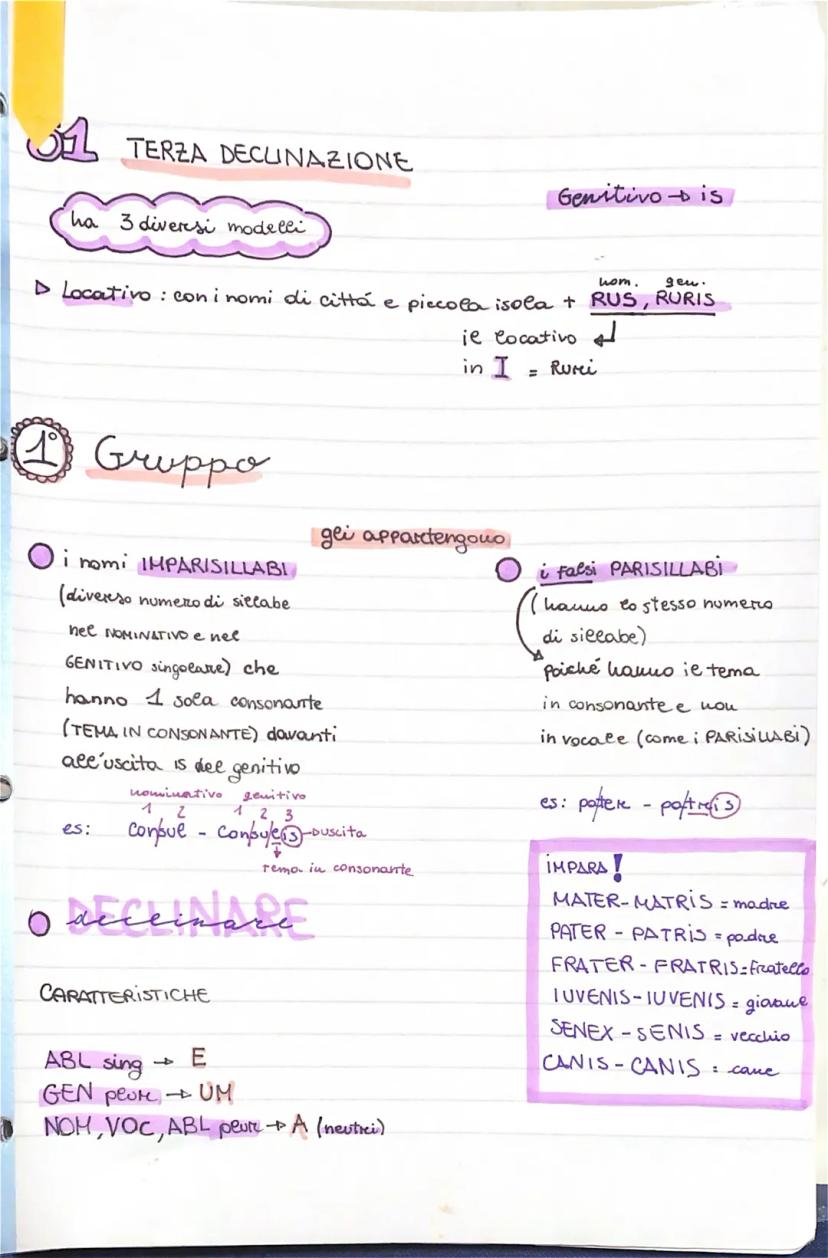 01 TERZA DECLINAZIONE
Genitivo → is
ha 3 diversi modelli
▷ Locativo : con i nomi di cittá e piccola isola + RUS, RURIS
nom. gen.
il locativo ↲
in I = Ruri
1° Gruppo
gli appartengono
i nomi IMPARISILLABI
(diverso numero di sillabe
nel NOMINATIVO e nel
GENITIVO singolare) che
hanno 1 sola consonante
(TEMA IN CONSONANTE) davanti
all'uscita is del genitivo
nominativo genitivo
1 2 1 2 3
es: Consul - Consulis → uscita
tema in consonante
i falsi PARISILLABI
(hanno lo stesso numero
di sillabe)
poiché hanno il tema
in consonante e non
in vocale (come i PARISILLABI)
es: pater - patris
IMPARA!
MATER - MATRIS = madre
PATER - PATRIS = padre
FRATER - FRATRIS = fratello
IUVENIS - IUVENIS = giovane
SENEX - SENIS = vecchio
CANIS - CANIS : cane
DECLINARE
declinare
CARATTERISTICHE
ABL sing → E
GEN plur → UM
NOM, VOC, ABL plur → A (neutri)